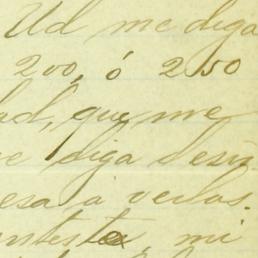 Ud me diga
200, ó 250
ad, que me
e diga desin
esa a verlas.
ntesta, mi